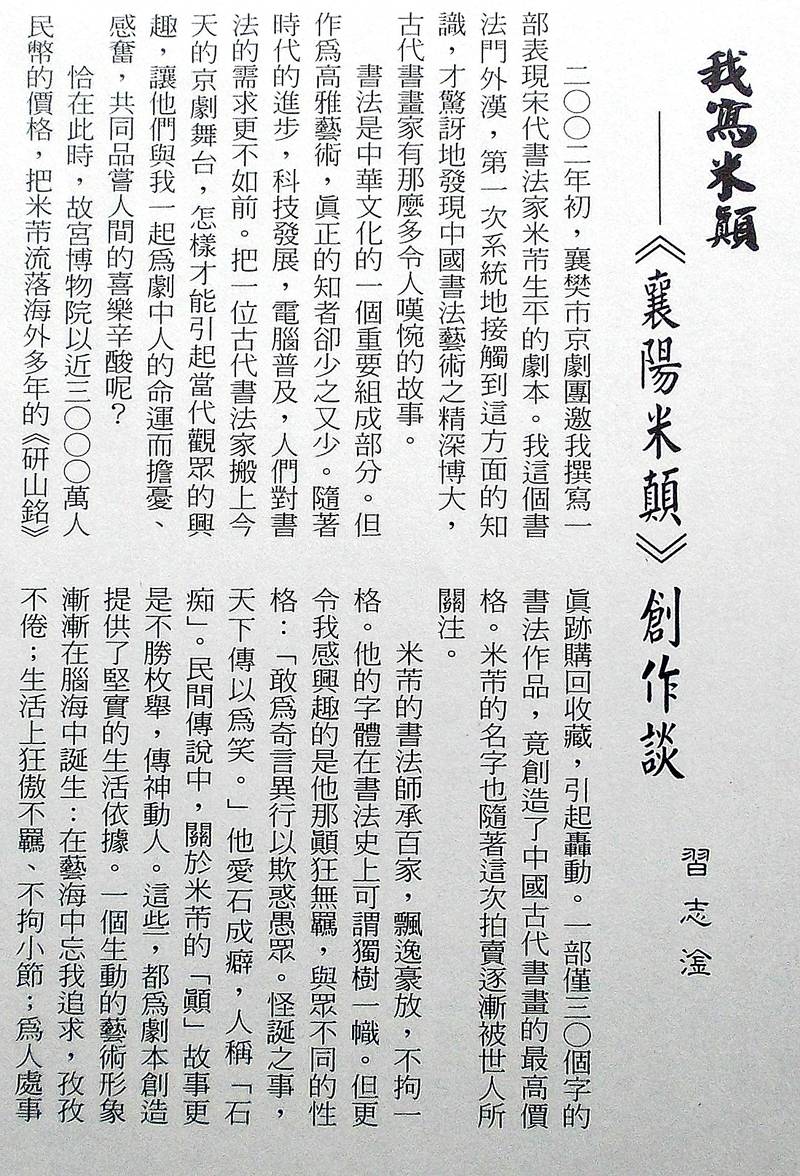 我寫米顛
——《襄陽米顛》創作談
習志淦
二〇〇二年初，襄樊市京劇團邀我撰寫一
部表現宋代書法家米芾生平的劇本。我這個書
法門外漢，第一次系統地接觸到這方面的知
識，才驚訝地發現中國書法藝術之精深博大，
古代書畫家有那麼多令人嘆惋的故事。
書法是中華文化的一個重要組成部分。但
作爲高雅藝術，眞正的知者卻少之又少。隨著
時代的進步，科技發展，電腦普及，人們對書
法的需求更不如前。把一位古代書法家搬上今
天的京劇舞台，怎樣才能引起當代觀眾的興
趣，讓他們與我一起爲劇中人的命運而擔憂、
感奮，共同品嘗人間的喜樂辛酸呢？
恰在此時，故宮博物院以近三〇〇〇萬人
民幣的價格，把米芾流落海外多年的《研山銘》
眞跡購回收藏，引起轟動。一部僅三〇個字的
書法作品，竟創造了中國古代書畫的最高價
格。米芾的名字也隨著這次拍賣逐漸被世人所
關注。
米芾的書法師承百家，飄逸豪放，不拘一
格。他的字體在書法史上可謂獨樹一幟。但更
令我感興趣的是他那顚狂無羈，與眾不同的性
格：「敢爲奇言異行以欺惑愚眾。怪誕之事，
天下傳以爲笑。」他愛石成癖，人稱「石
痴」。民間傳說中，關於米芾的「顚」故事更
是不勝枚舉，傳神動人。這些，都爲劇本創造
提供了堅實的生活依據。一個生動的藝術形象
漸漸在腦海中誕生：在藝海中忘我追求，孜孜
不倦；生活上狂傲不羈、不拘小節；爲人處事